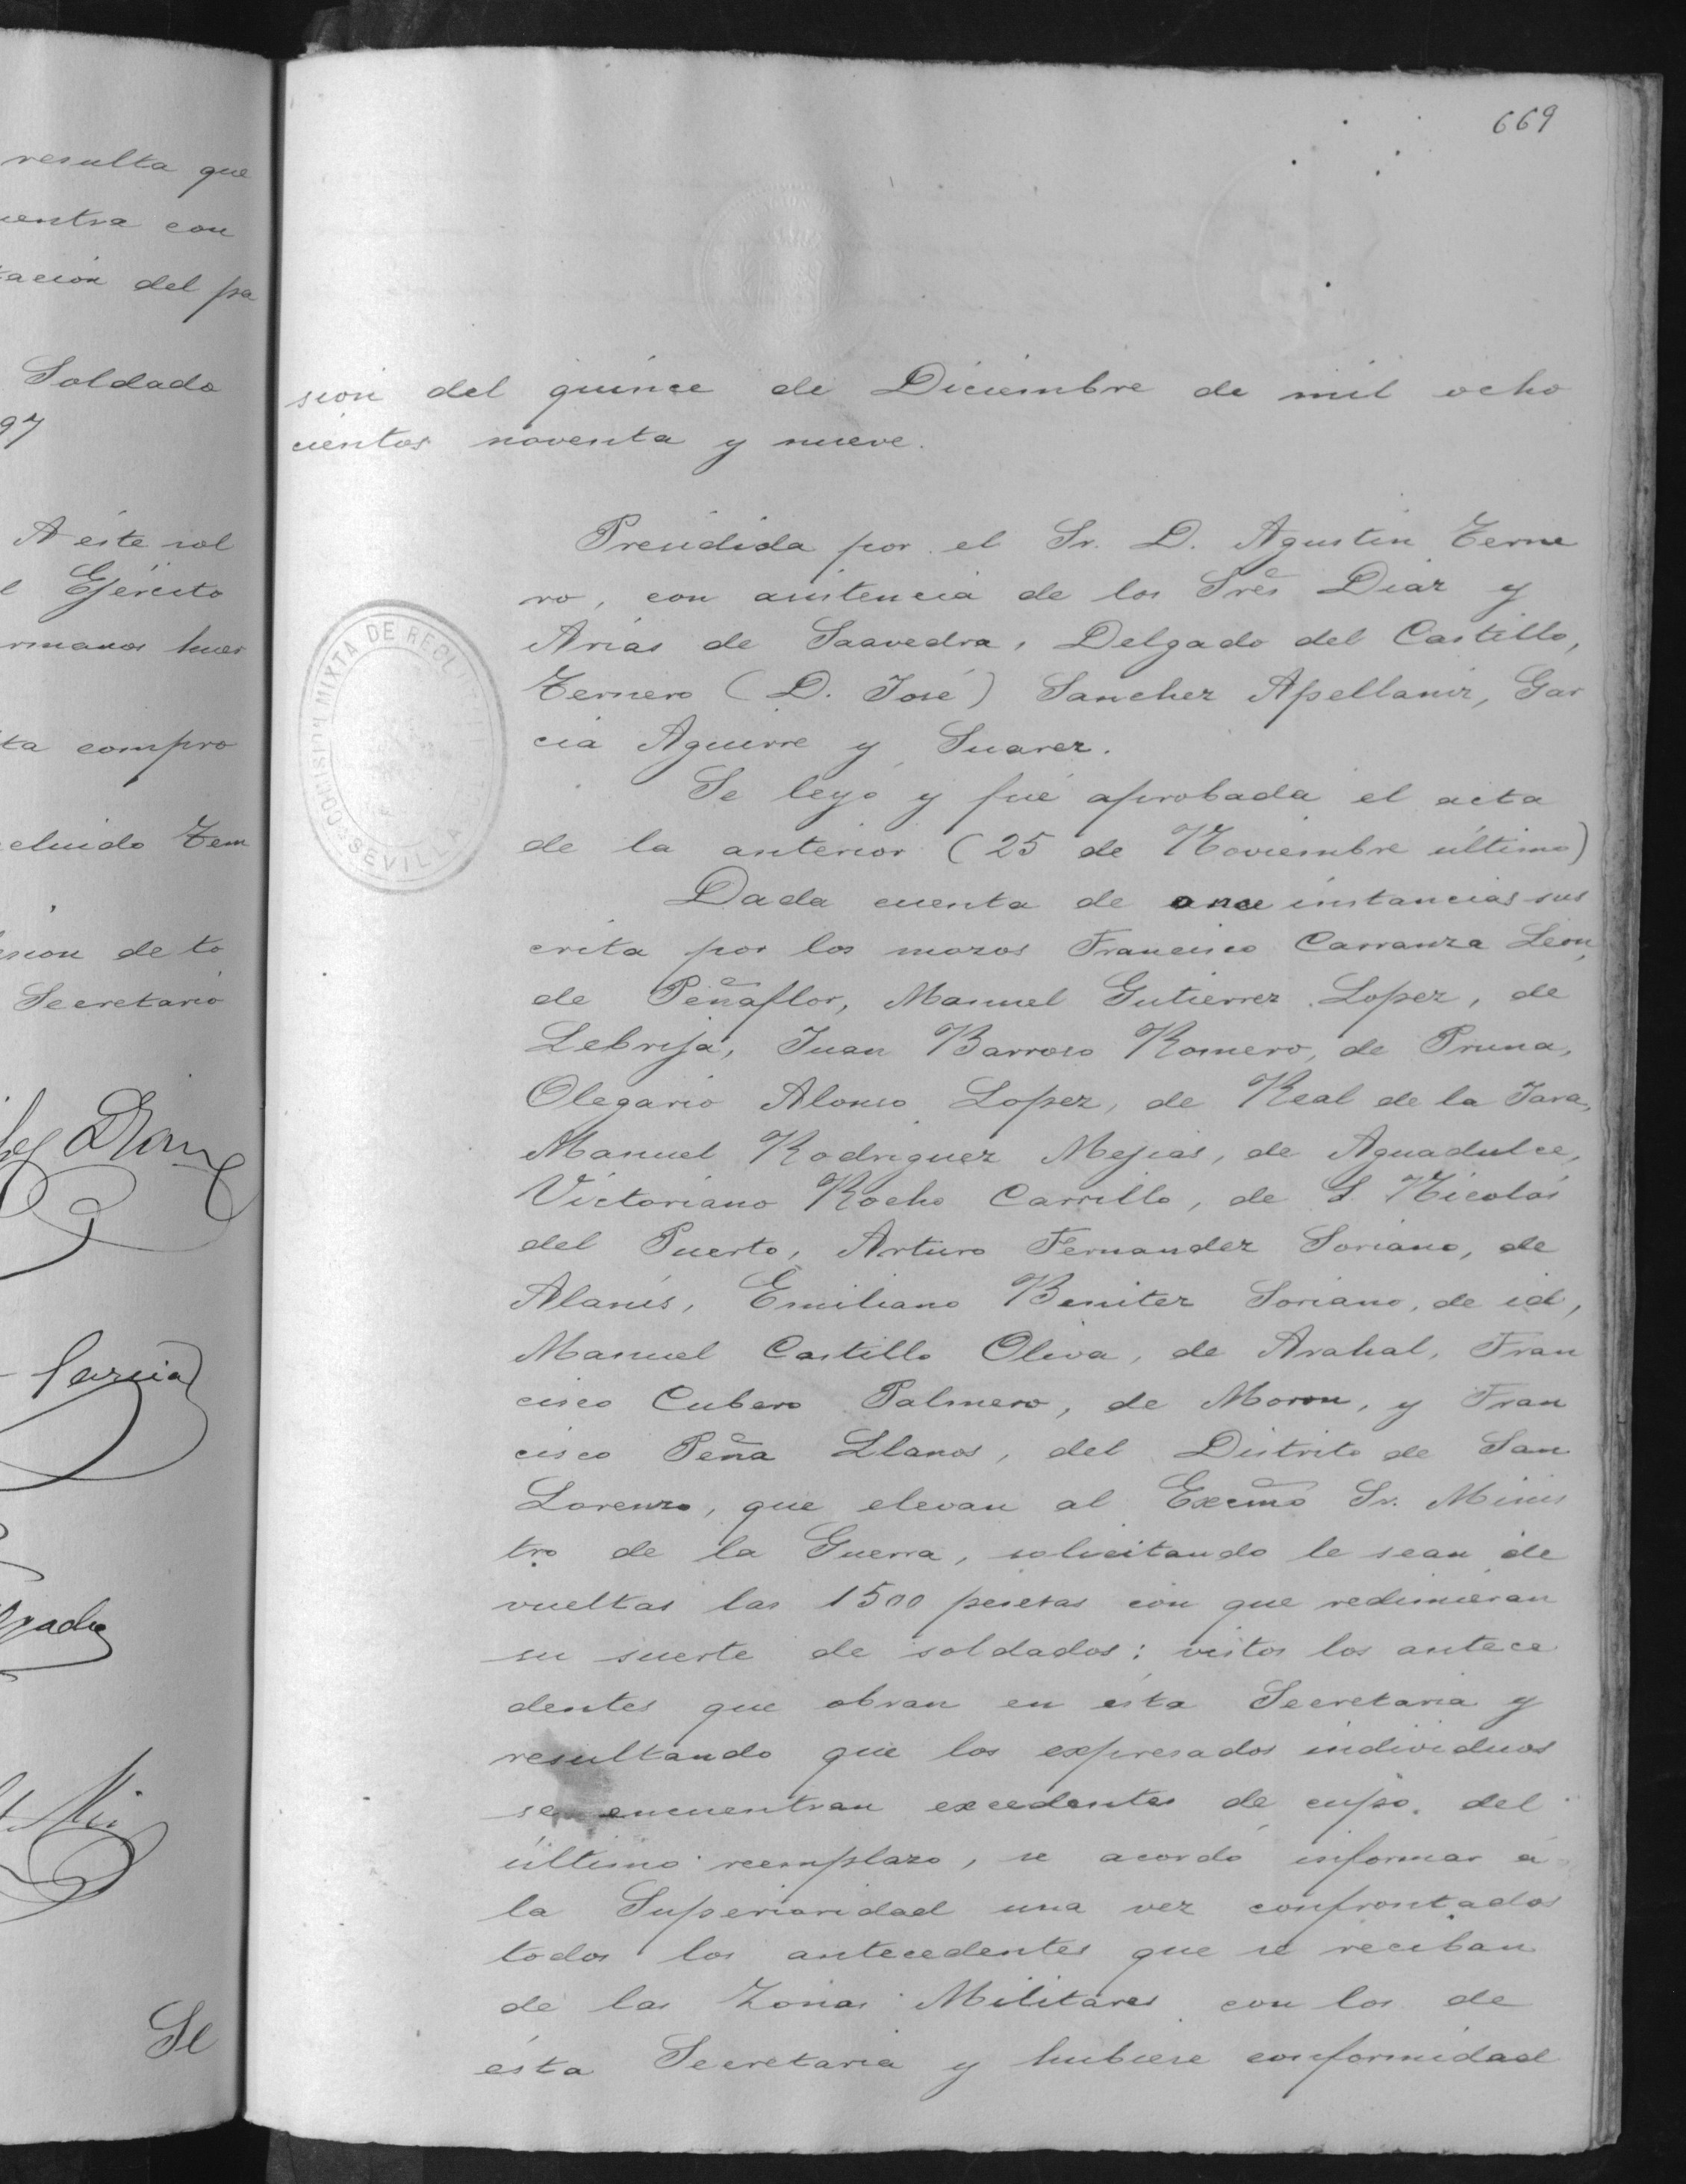 resulta que
entra con
tacion del pa
Soldado
97
A éste sol
Ejército
rmanos huer
ta compro
cluido Tem
sion de to
Secretario
Garcia
Se
669
sion del quince de Diciembre de mil ocho
cientos noventa y nueve.
Presidida por el Sr. D. Agustin Terne
ro, con asistencia de los Sres Diaz y
Arias de Saavedra, Delgado del Castillo,
Ternero (D. José) Sanchez Apellaniz, Gar
cia Aguirre y Suarez.
Se leyó y fué aprobada el acta
de la anterior (25 de Noviembre último)
Dada cuenta de once instancias sus
crita por los mozos Francisco Carranza Leon,
de Peñaflor, Manuel Gutierrez Lopez, de
Lebrija, Juan Barroso Romero, de Pruna,
Olegario Alonso Lopez, de Real de la Jara,
Manuel Rodriguez Mejias, de Aguadulce,
Victoriano Rocho Carrillo, de S. Nicolás
del Puerto, Arturo Fernandez Soriano, de
Alanís, Emiliano Benitez Soriano, de id,
Manuel Castillo Oliva, de Arahal, Fran
cisco Cubero Palmero, de Moron, y Fran
cisco Peña Llanos, del Distrito de San
Lorenzo, que elevan al Excmo Sr. Minis
tro de la Guerra, solicitando le sean de
vueltas las 1500 pesetas con que redimieran
su suerte de soldados: vistos los antece
dentes que obran en ésta Secretaria y
resultando que los expresados individuos
se encuentran excedentes de cupo del
último reemplazo, se acordó informar á
la Superioridad una vez confrontados
todos los antecedentes que se reciban
de las Zonas Militares con los de
ésta Secretaria y hubiese conformidad
COMISION MIXTA DE RECL
SEVILLA